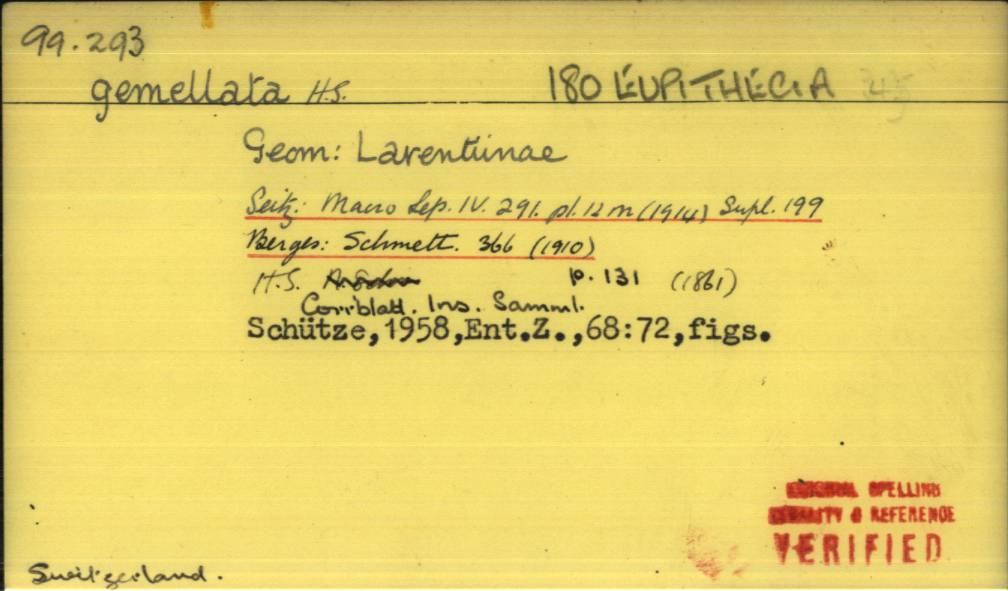 99.293
gemellata H.S. 180 EUPITHECIA
Geom: Larentiinae
Seitz: Macro Lep. IV. 291. pl. 12 m (1914) Supl. 199
Berges: Schmett. 366 (1910)
H.S. p. 131 (1861)
Corrblatt. Ins. Samml.
Schütze,1958,Ent.Z.,68:72,figs.
ORIGINAL SPELLING
LOCALITY & REFERENCE
VERIFIED
Switzerland.